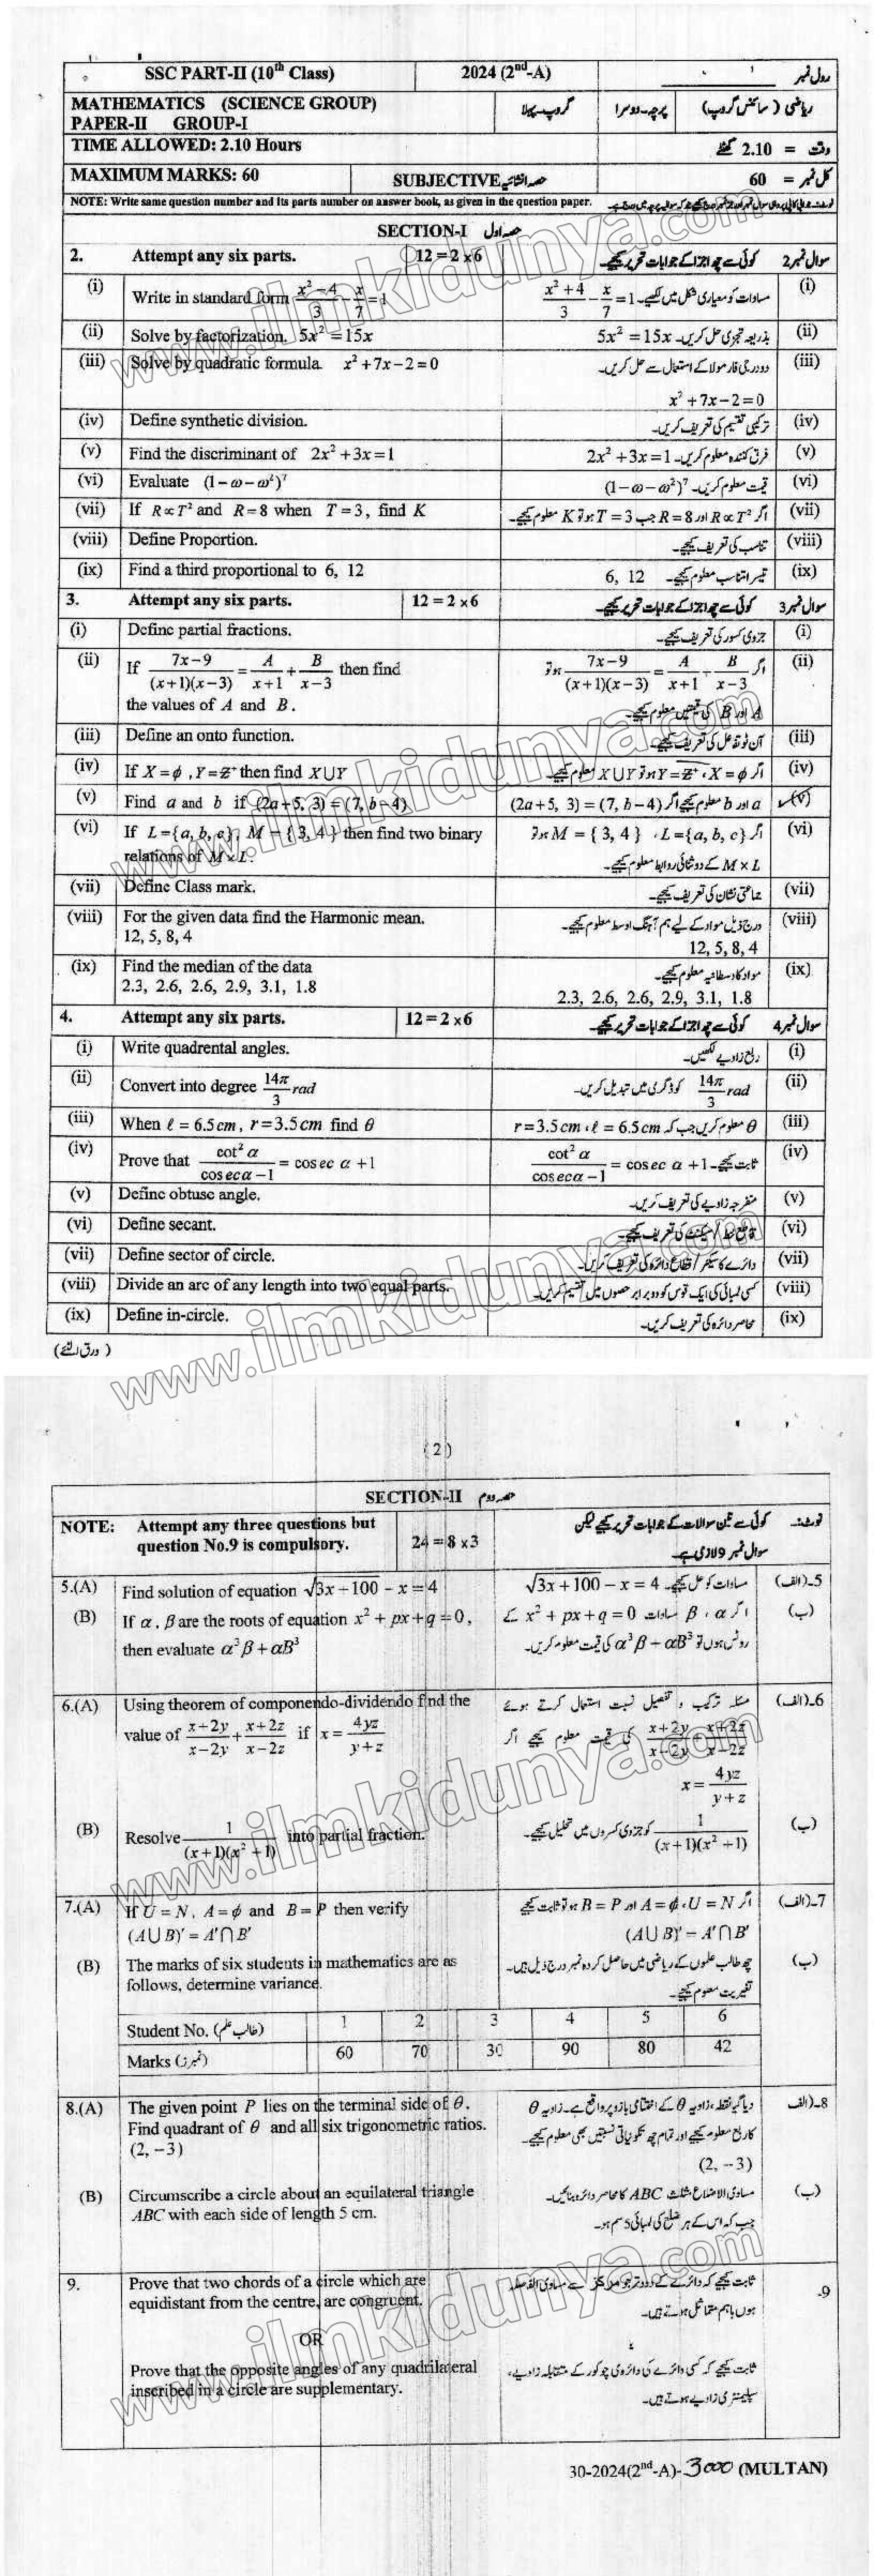 SSC PART-II (10th Class) 2024 (2nd-A) رول نمبر
MATHEMATICS (SCIENCE GROUP) ریاضی (سائنس گروپ)
PAPER-II GROUP-I پرچہ-دوسرا گروپ-پہلا
TIME ALLOWED: 2.10 Hours وقت = 2.10 گھنٹے
MAXIMUM MARKS: 60 SUBJECTIVE حصہ انشائیہ کل نمبر = 60
NOTE: Write same question number and its parts number on answer book, as given in the question paper.
SECTION-I حصہ اول
2. Attempt any six parts. 12 = 2 x 6 کوئی سے چھ اجزا کے جوابات تحریر کیجیے۔ سوال نمبر 2
(i) Write in standard form (x² - 4)/3 - x/7 = 1 مساوات کو معیاری شکل میں لکھیے۔ (x² + 4)/3 - x/7 = 1 (i)
(ii) Solve by factorization. 5x² = 15x بذریعہ تجزی حل کریں۔ 5x² = 15x (ii)
(iii) Solve by quadratic formula. x² + 7x - 2 = 0 دو درجی فارمولا کے استعمال سے حل کریں۔ (iii)
x² + 7x - 2 = 0
(iv) Define synthetic division. ترکیبی تقسیم کی تعریف کریں۔ (iv)
(v) Find the discriminant of 2x² + 3x = 1 فرق کنندہ معلوم کریں۔ 2x² + 3x = 1 (v)
(vi) Evaluate (1 - ω - ω²)⁷ قیمت معلوم کریں۔ (1 - ω - ω²)⁷ (vi)
(vii) If R ∝ T² and R = 8 when T = 3, find K اگر R ∝ T² اور R = 8 جب T = 3 ہو تو K معلوم کیجیے۔ (vii)
(viii) Define Proportion. تناسب کی تعریف کیجیے۔ (viii)
(ix) Find a third proportional to 6, 12 تیسرا متناسب معلوم کیجیے۔ 6, 12 (ix)
3. Attempt any six parts. 12 = 2 x 6 کوئی سے چھ اجزا کے جوابات تحریر کیجیے۔ سوال نمبر 3
(i) Define partial fractions. جزوی کسور کی تعریف کیجیے۔ (i)
(ii) If (7x - 9)/((x+1)(x-3)) = A/(x+1) + B/(x-3) then find اگر (7x - 9)/((x+1)(x-3)) = A/(x+1) - B/(x-3) ہو تو (ii)
the values of A and B. A اور B کی قیمتیں معلوم کیجیے۔
(iii) Define an onto function. آن ٹو تفاعل کی تعریف کیجیے۔ (iii)
(iv) If X = ϕ , Y = Z⁺ then find X∪Y اگر X = ϕ ، Y = Z⁺ ہو تو X∪Y معلوم کیجیے۔ (iv)
(v) Find a and b if (2a+5, 3) = (7, b-4) a اور b معلوم کیجیے اگر (2a+5, 3) = (7, b-4) (v)
(vi) If L = {a, b, c}, M = {3, 4} then find two binary اگر L = {a, b, c} ، M = {3, 4} ہو تو (vi)
relations of M × L. M × L کے دو ثنائی روابط معلوم کیجیے۔
(vii) Define Class mark. جماعتی نشان کی تعریف کیجیے۔ (vii)
(viii) For the given data find the Harmonic mean. درج ذیل مواد کے لیے ہم آہنگ اوسط معلوم کیجیے۔ (viii)
12, 5, 8, 4 12, 5, 8, 4
(ix) Find the median of the data مواد کا وسطانیہ معلوم کیجیے۔ (ix)
2.3, 2.6, 2.6, 2.9, 3.1, 1.8 2.3, 2.6, 2.6, 2.9, 3.1, 1.8
4. Attempt any six parts. 12 = 2 x 6 کوئی سے چھ اجزا کے جوابات تحریر کیجیے۔ سوال نمبر 4
(i) Write quadrental angles. ربع زاویے لکھیں۔ (i)
(ii) Convert into degree 14π/3 rad 14π/3 rad کو ڈگری میں تبدیل کریں۔ (ii)
(iii) When ℓ = 6.5cm, r = 3.5cm find θ θ معلوم کریں جب کہ r = 3.5cm ، ℓ = 6.5cm (iii)
(iv) Prove that cot² α/(cosec α - 1) = cosec α + 1 ثابت کیجیے۔ cot² α/(cosec α - 1) = cosec α + 1 (iv)
(v) Define obtuse angle. منفرجہ زاویے کی تعریف کریں۔ (v)
(vi) Define secant. قاطع خط / سیکنٹ کی تعریف کیجیے۔ (vi)
(vii) Define sector of circle. دائرے کا سیکٹر / قطاع دائرہ کی تعریف کریں۔ (vii)
(viii) Divide an arc of any length into two equal parts. کسی لمبائی کی ایک قوس کو دو برابر حصوں میں تقسیم کریں۔ (viii)
(ix) Define in-circle. محاصر دائرہ کی تعریف کریں۔ (ix)
(ورق الٹیے)
(2)
SECTION-II حصہ دوم
NOTE: Attempt any three questions but 24 = 8 x 3 نوٹ:۔ کوئی سے تین سوالات کے جوابات تحریر کیجیے لیکن
question No.9 is compulsory. سوال نمبر 9 لازمی ہے۔
5.(A) Find solution of equation √(3x+100) - x = 4 مساوات کو حل کیجیے۔ √(3x+100) - x = 4 5۔(الف)
(B) If α, β are the roots of equation x² + px + q = 0, اگر α ، β مساوات x² + px + q = 0 کے (ب)
then evaluate α³β + αB³ روٹس ہوں تو α³β - αB³ کی قیمت معلوم کریں۔
6.(A) Using theorem of componendo-dividendo find the مسئلہ ترکیب و تفصیل نسبت استعمال کرتے ہوئے 6۔(الف)
value of (x+2y)/(x-2y) + (x+2z)/(x-2z) if x = 4yz/(y+z) (x+2y)/(x-2y) (x+2z)/(x-2z) کی قیمت معلوم کیجیے اگر
x = 4yz/(y+z)
(B) Resolve 1/((x+1)(x²+1)) into partial fraction. 1/((x+1)(x²+1)) کو جزوی کسروں میں تحلیل کیجیے۔ (ب)
7.(A) If U = N, A = ϕ and B = P then verify اگر U = N ، A = ϕ اور B = P ہو تو ثابت کیجیے 7۔(الف)
(A∪B)' = A'∩B' (A∪B)' = A'∩B'
(B) The marks of six students in mathematics are as چھ طالب علموں کے ریاضی میں حاصل کردہ نمبر درج ذیل ہیں۔ (ب)
follows, determine variance. تغیریت معلوم کیجیے۔
Student No. (طالب علم) 1 2 3 4 5 6
Marks (نمبرز) 60 70 30 90 80 42
8.(A) The given point P lies on the terminal side of θ. دیا گیا نقطہ، زاویہ θ کے اختتامی بازو پر واقع ہے۔ زاویہ θ 8۔(الف
Find quadrant of θ and all six trigonometric ratios. کا ربع معلوم کیجیے اور تمام چھ تکونیاتی نسبتیں بھی معلوم کیجیے۔
(2, -3) (2, -3)
(B) Circumscribe a circle about an equilateral triangle مساوی الاضلاع مثلث ABC کا محاصر دائرہ بنائیں۔ (ب)
ABC with each side of length 5 cm. جب کہ اس کے ہر ضلع کی لمبائی 5 سم ہو۔
9. Prove that two chords of a circle which are ثابت کیجیے کہ دائرے کے دو وتر جو مرکز سے مساوی الفاصلہ 9-
equidistant from the centre, are congruent. ہوں باہم متماثل ہوتے ہیں۔
OR
Prove that the opposite angles of any quadrilateral ثابت کیجیے کہ کسی دائرے کی دائروی چوکور کے متقابلہ زاویے،
inscribed in a circle are supplementary. سپلیمنٹری زاویے ہوتے ہیں۔
30-2024(2nd-A)-3000 (MULTAN)
www.ilmkidunya.com
www.ilmkidunya.com
www.ilmkidunya.com
www.ilmkidunya.com
www.ilmkidunya.com